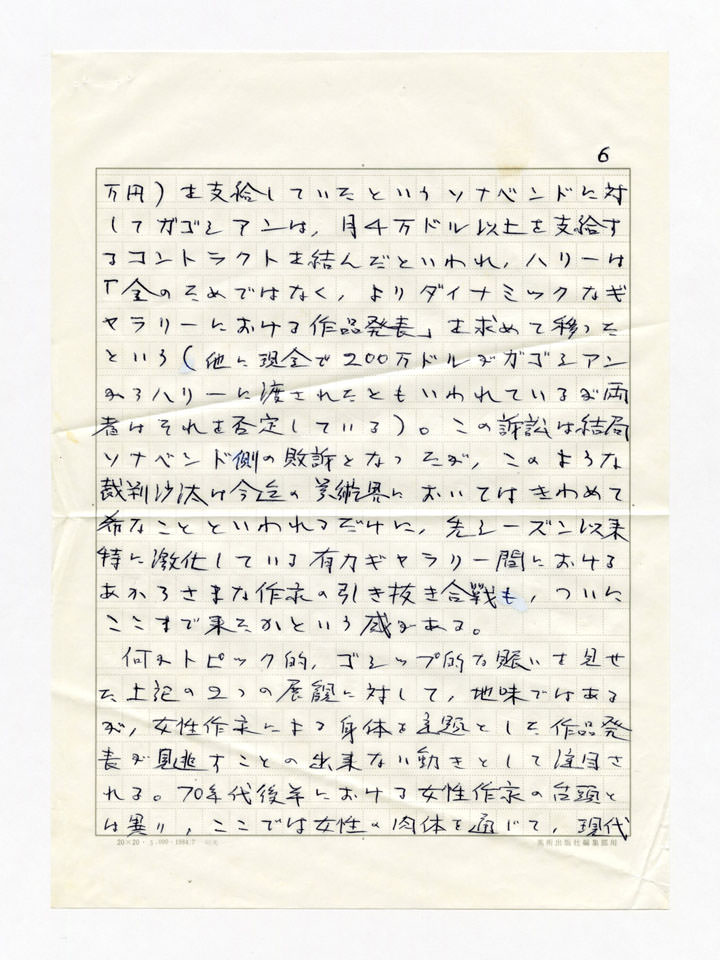 6
万円）を支給していたというソナベンドに対
してガゴシアンは、月4万ドル以上を支給す
るコントラクトを結んだといわれ、ハリーは
「金のためではなく、よりダイナミックなギ
ャラリーにおける作品発表」を求めて移った
という（他に現金で200万ドルがガゴシアン
からハリーに渡されたともいわれているが両
者はそれを否定している）。この訴訟は結局
ソナベンド側の敗訴となったが、このような
裁判沙汰は今迄の美術界においてはきわめて
希なことといわれるだけに、先シーズン以来
特に激化している有力ギャラリー間における
あからさまな作家の引き抜き合戦も、ついに
ここまで来たかという感がある。
何かトピック的、ゴシップ的な賑いを見せ
た上記の2つの展観に対して、地味ではある
が、女性作家による身体を主題とした作品発
表が見逃すことの出来ない動きとして注目さ
れる。70年代後半における女性作家の台頭と
は異り、ここでは女性の肉体を通じて、現代
20×20・5,000・1984.7
美術出版社編集部用